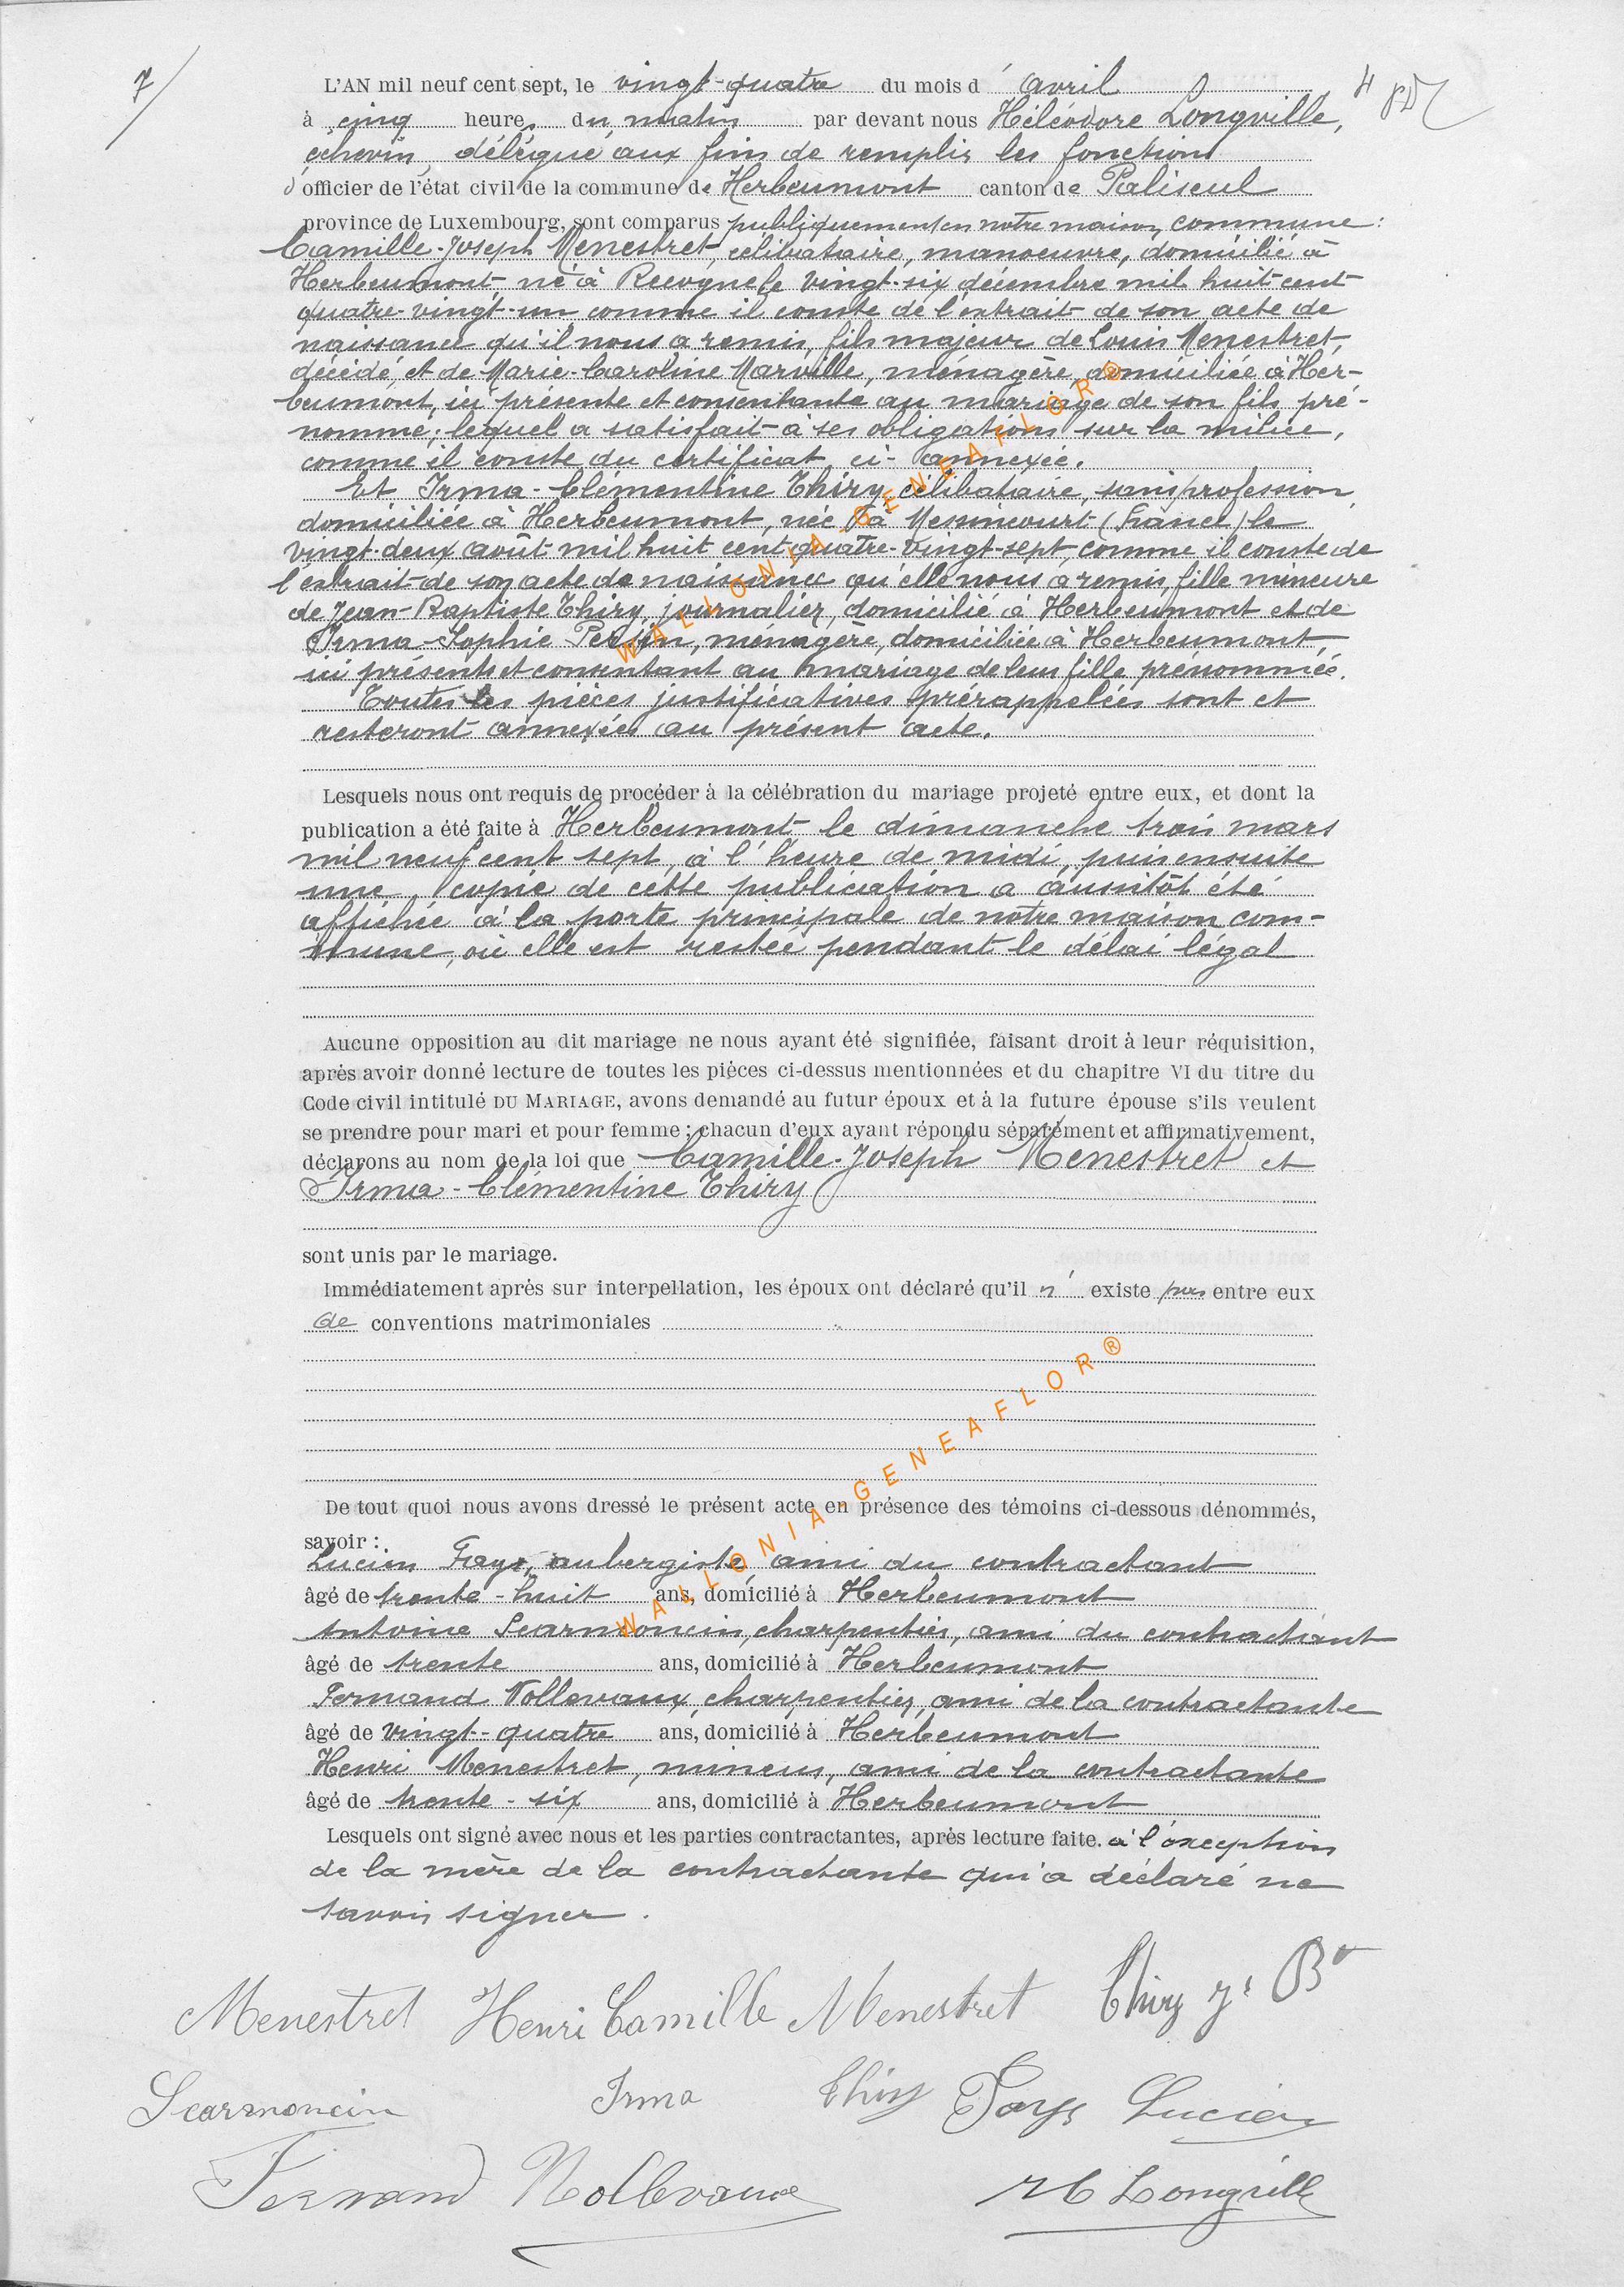 7/
L'AN mil neuf cent sept, le vingt-quatre du mois d' avril
4
à cinq heures du matin par devant nous Héléodore Longville,
échevin, délégué aux fins de remplir les fonctions
d'officier de l'état civil de la commune de Herbeumont canton de Paliseul
province de Luxembourg, sont comparus publiquement en notre maison commune :
Camille-Joseph Menestret, célibataire, manoeuvre, domicilié à
Herbeumont, né à Recogne le vingt-six décembre mil huit cent
quatre-vingt-un comme il conste de l'extrait de son acte de
naissance qu'il nous a remis, fils majeur de Louis Menestret
décédé, et de Marie-Caroline Marville, ménagère, domiciliée à Her-
beumont, ici présente et consentante au mariage de son fils pré-
nommé ; lequel a satisfait à ses obligations sur la milice,
comme il conste du certificat ci-annexée.
Et Irma-Clémentine Thiry, célibataire, sans profession,
domiciliée à Herbeumont, née à Messincourt (France) le
vingt-deux août mil huit cent quatre-vingt-sept, comme il conste de
l'extrait de son acte de naissance qu'elle nous a remis, fille mineure
de Jean-Baptiste Thiry, journalier, domicilié à Herbeumont et de
Irma-Sophie Persin, ménagère, domiciliée à Herbeumont,
ici présents et consentant au mariage de leur fille prénommée.
Toutes les pièces justificatives prérappelées sont et
resteront annexées au présent acte.
Lesquels nous ont requis de procéder à la célébration du mariage projeté entre eux, et dont la
publication a été faite à Herbeumont le dimanche trois mars
mil neuf cent sept, à l'heure de midi, puis ensuite
une copie de cette publication a aussitôt été
affichée à la porte principale de notre maison com-
mune, où elle est restée pendant le délai légal
Aucune opposition au dit mariage ne nous ayant été signifiée, faisant droit à leur réquisition,
après avoir donné lecture de toutes les pièces ci-dessus mentionnées et du chapitre VI du titre du
Code civil intitulé DU MARIAGE, avons demandé au futur époux et à la future épouse s'ils veulent
se prendre pour mari et pour femme ; chacun d'eux ayant répondu séparément et affirmativement,
déclarons au nom de la loi que Camille-Joseph Menestret et
Irma-Clémentine Thiry
sont unis par le mariage.
Immédiatement après sur interpellation, les époux ont déclaré qu'il n' existe pas entre eux
de conventions matrimoniales
De tout quoi nous avons dressé le présent acte en présence des témoins ci-dessous dénommés,
savoir :
Lucien Fays, aubergiste, ami du contractant
âgé de trente-huit ans, domicilié à Herbeumont
Antoine Scarmoncin, charpentier, ami du contractant
âgé de trente ans, domicilié à Herbeumont
Fernand Nollevaux, charpentier, ami de la contractante
âgé de vingt-quatre ans, domicilié à Herbeumont
Henri Menestret, mineur, ami de la contractante
âgé de trente-six ans, domicilié à Herbeumont
Lesquels ont signé avec nous et les parties contractantes, après lecture faite. à l'exception
de la mère de la contractante qui a déclaré ne
savoir signer.
Menestret Henri Camille Menestret Thiry J. Bte
Scarmoncin Irma Thiry Fays Lucien
Fernand Nollevaux H Longville
WALLONIA-GENEAFLOR®
WALLONIA-GENEAFLOR®